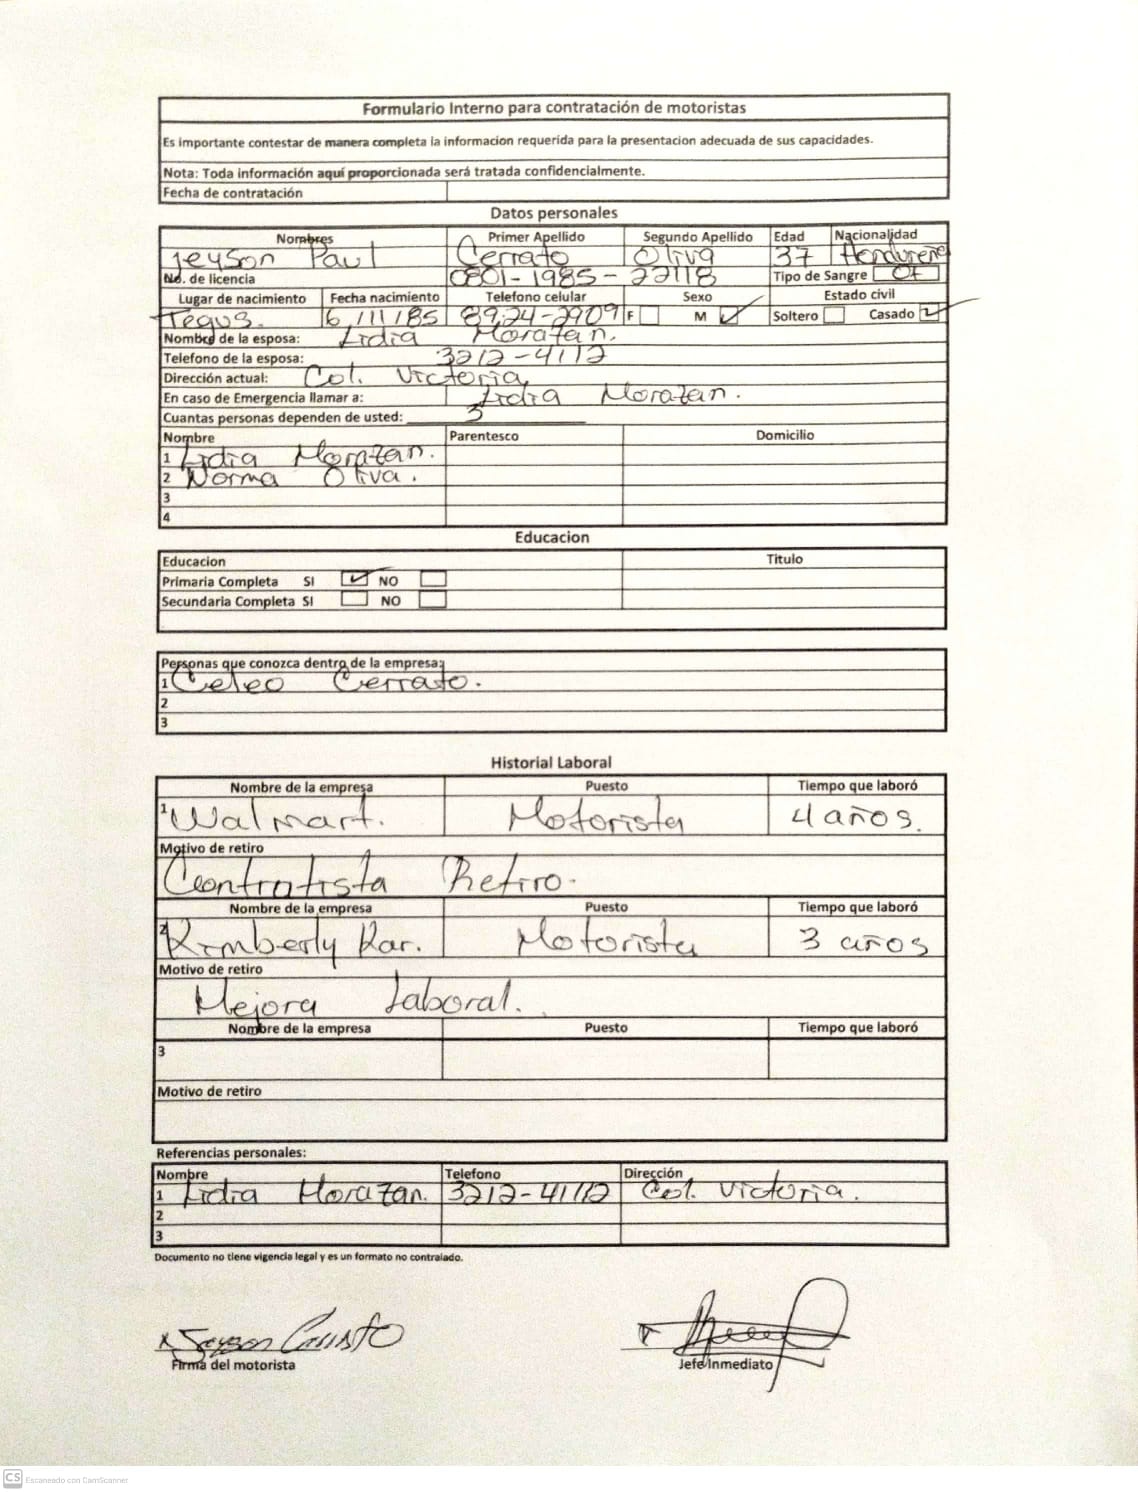 Formulario Interno para contratación de motoristas
Es importante contestar de manera completa la informacion requerida para la presentacion adecuada de sus capacidades.
Nota: Toda información aquí proporcionada será tratada confidencialmente.
Fecha de contratación
Datos personales
Nombres Primer Apellido Segundo Apellido Edad Nacionalidad
Jeyson Paul Cerrato Oliva 37 Hondureñe
No. de licencia 0801-1985-22118 Tipo de Sangre O+
Lugar de nacimiento Fecha nacimiento Telefono celular Sexo Estado civil
Tegus. 6/11/85 8924-2909 F M Soltero Casado
Nombre de la esposa: Lidia Morazan.
Telefono de la esposa: 3212-4112
Dirección actual: Col. Victoria
En caso de Emergencia llamar a: Lidia Morazan.
Cuantas personas dependen de usted: 3
Nombre Parentesco Domicilio
1 Lidia Morazan.
2 Norma Oliva.
3
4
Educacion
Educacion Titulo
Primaria Completa SI NO
Secundaria Completa SI NO
Personas que conozca dentro de la empresa:
1 Celeo Cerrato.
2
3
Historial Laboral
Nombre de la empresa Puesto Tiempo que laboró
1 Walmart. Motorista 4 años.
Motivo de retiro
Contratista Retiro.
Nombre de la empresa Puesto Tiempo que laboró
2 Kimberly Kar. Motorista 3 años
Motivo de retiro
Mejora Laboral.
Nombre de la empresa Puesto Tiempo que laboró
3
Motivo de retiro
Referencias personales:
Nombre Telefono Dirección
1 Lidia Morazan. 3212-4112 Col. Victoria.
2
3
Documento no tiene vigencia legal y es un formato no contralado.
Jeyson Cerrato
Firma del motorista Jefe Inmediato
CS Escaneado con CamScanner